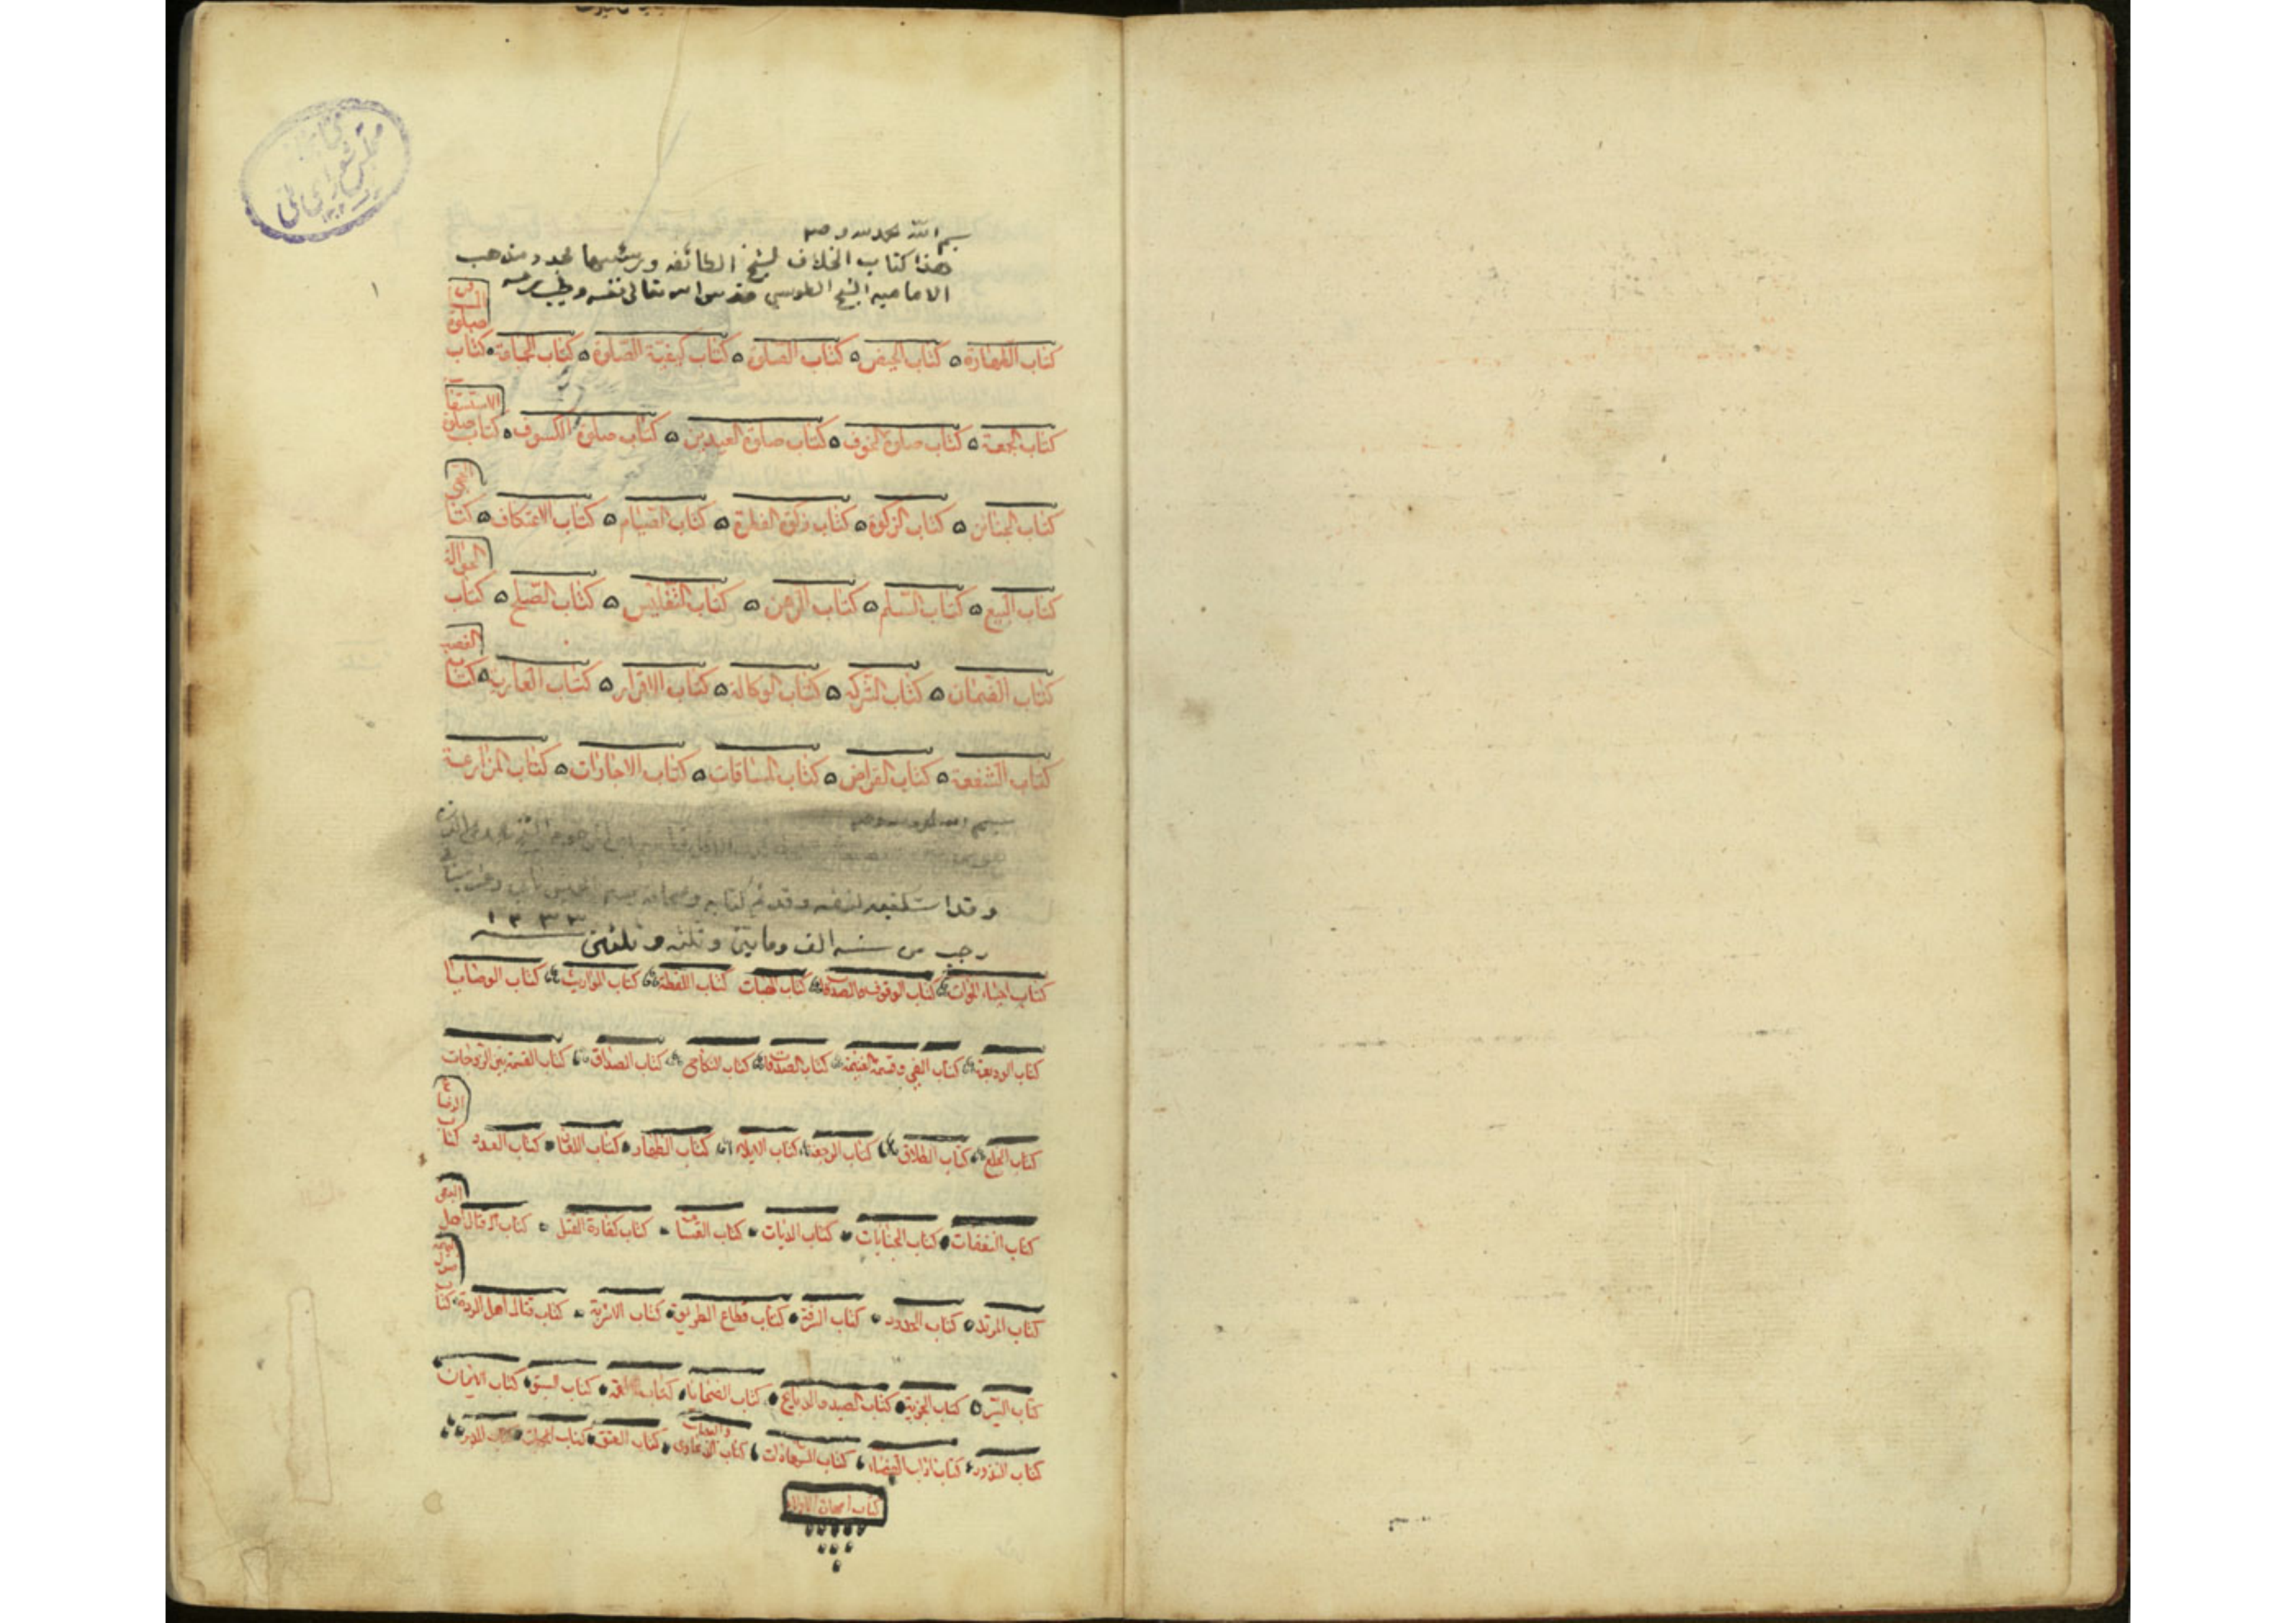 كتابخانه
مجلس شورای ملی
بسم الله
هذا كتاب الخلاف لشيخ الطائفه ورئيسها مجدد مذهب
الاماميه الشيخ الطوسي قدس الله تعالى نفسه وطيب رمسه
١
كتاب الطهارة ه كتاب الحيض ه كتاب الصلوة ه كتاب كيفية الصلوة ه كتاب الجماعة ه كتاب صلوة المسافر
كتاب الجمعة ه كتاب صلوة الخوف ه كتاب صلوة العيدين ه كتاب صلوة الكسوف ه كتاب صلوة الاستسقا
كتاب الجنائز ه كتاب الزكوة ه كتاب زكوة الفطرة ه كتاب الصيام ه كتاب الاعتكاف ه كتا الحج
كتاب البيع ه كتاب السلم ه كتاب الرهن ه كتاب التفليس ه كتاب الصلح ه كتاب الحوالة
كتاب الضمان ه كتاب الشركه ه كتاب الوكالة ه كتاب الاقرار ه كتاب العارية ه كتاب الغصب
كتاب الشفعة ه كتاب القراض ه كتاب المساقات ه كتاب الاجارات ه كتاب المزارعة
بسم الله
وقد استكتبه لنفسه وقد تم كتابه
رجب من سنه الف ومايتين وثلثه وثلثين
كتاب احياء الموات كتاب الوقوف والصدقات كتاب الهبات كتاب اللقطة كتاب المواريث كتاب الوصايا
كتاب الوديعة كتاب الفي وقسمة الغنيمة كتاب الصدقات كتاب النكاح كتاب الصداق كتاب القسمة بين الزوجات
كتاب الخلع كتاب الطلاق كتاب الرجعة كتاب الايلاء كتاب الظهار كتاب اللعان كتاب العدد كتاب الرضاع
كتاب النفقات كتاب الجنايات كتاب الديات كتاب القسامة كتاب كفارة القتل كتاب قتال اهل البغى
كتاب المرتد كتاب الحدود كتاب السرقة كتاب قطاع الطريق كتاب الاشربة كتاب قتال اهل الردة كتاب
كتاب السير كتاب الجزية كتاب الصيد والذبايح كتاب الضحايا كتاب كتاب السبق كتاب الايمان
كتاب النذور كتاب اداب القضاء كتاب الشهادات كتاب الدعاوى والبينات كتاب العتق كتاب المكاتب كتاب المدبر
كتاب امهات الاولاد